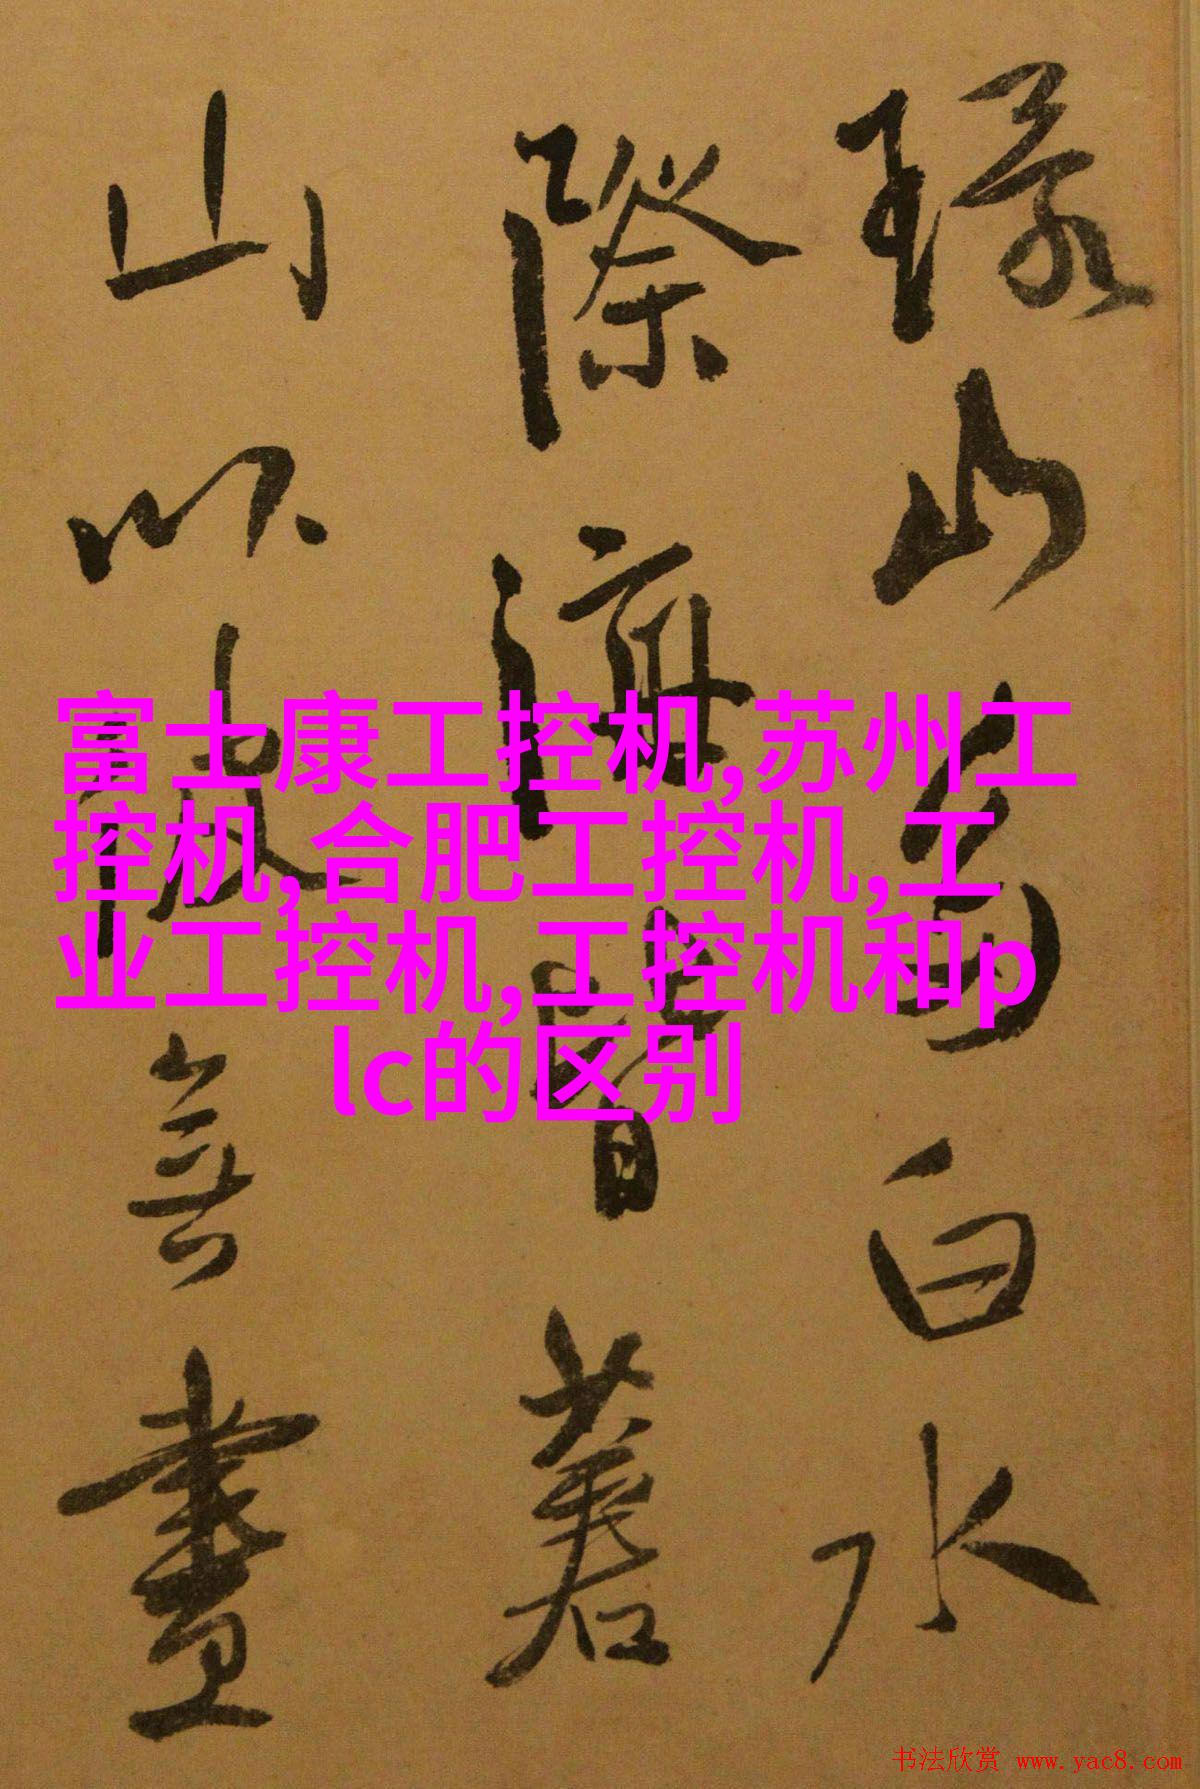 山白水
際海皆
山無盡
富士康工控机,苏州工
控机,合肥工控机,工
业工控机,工控机和p
lc的区别
书法欣赏 www.yac8.com